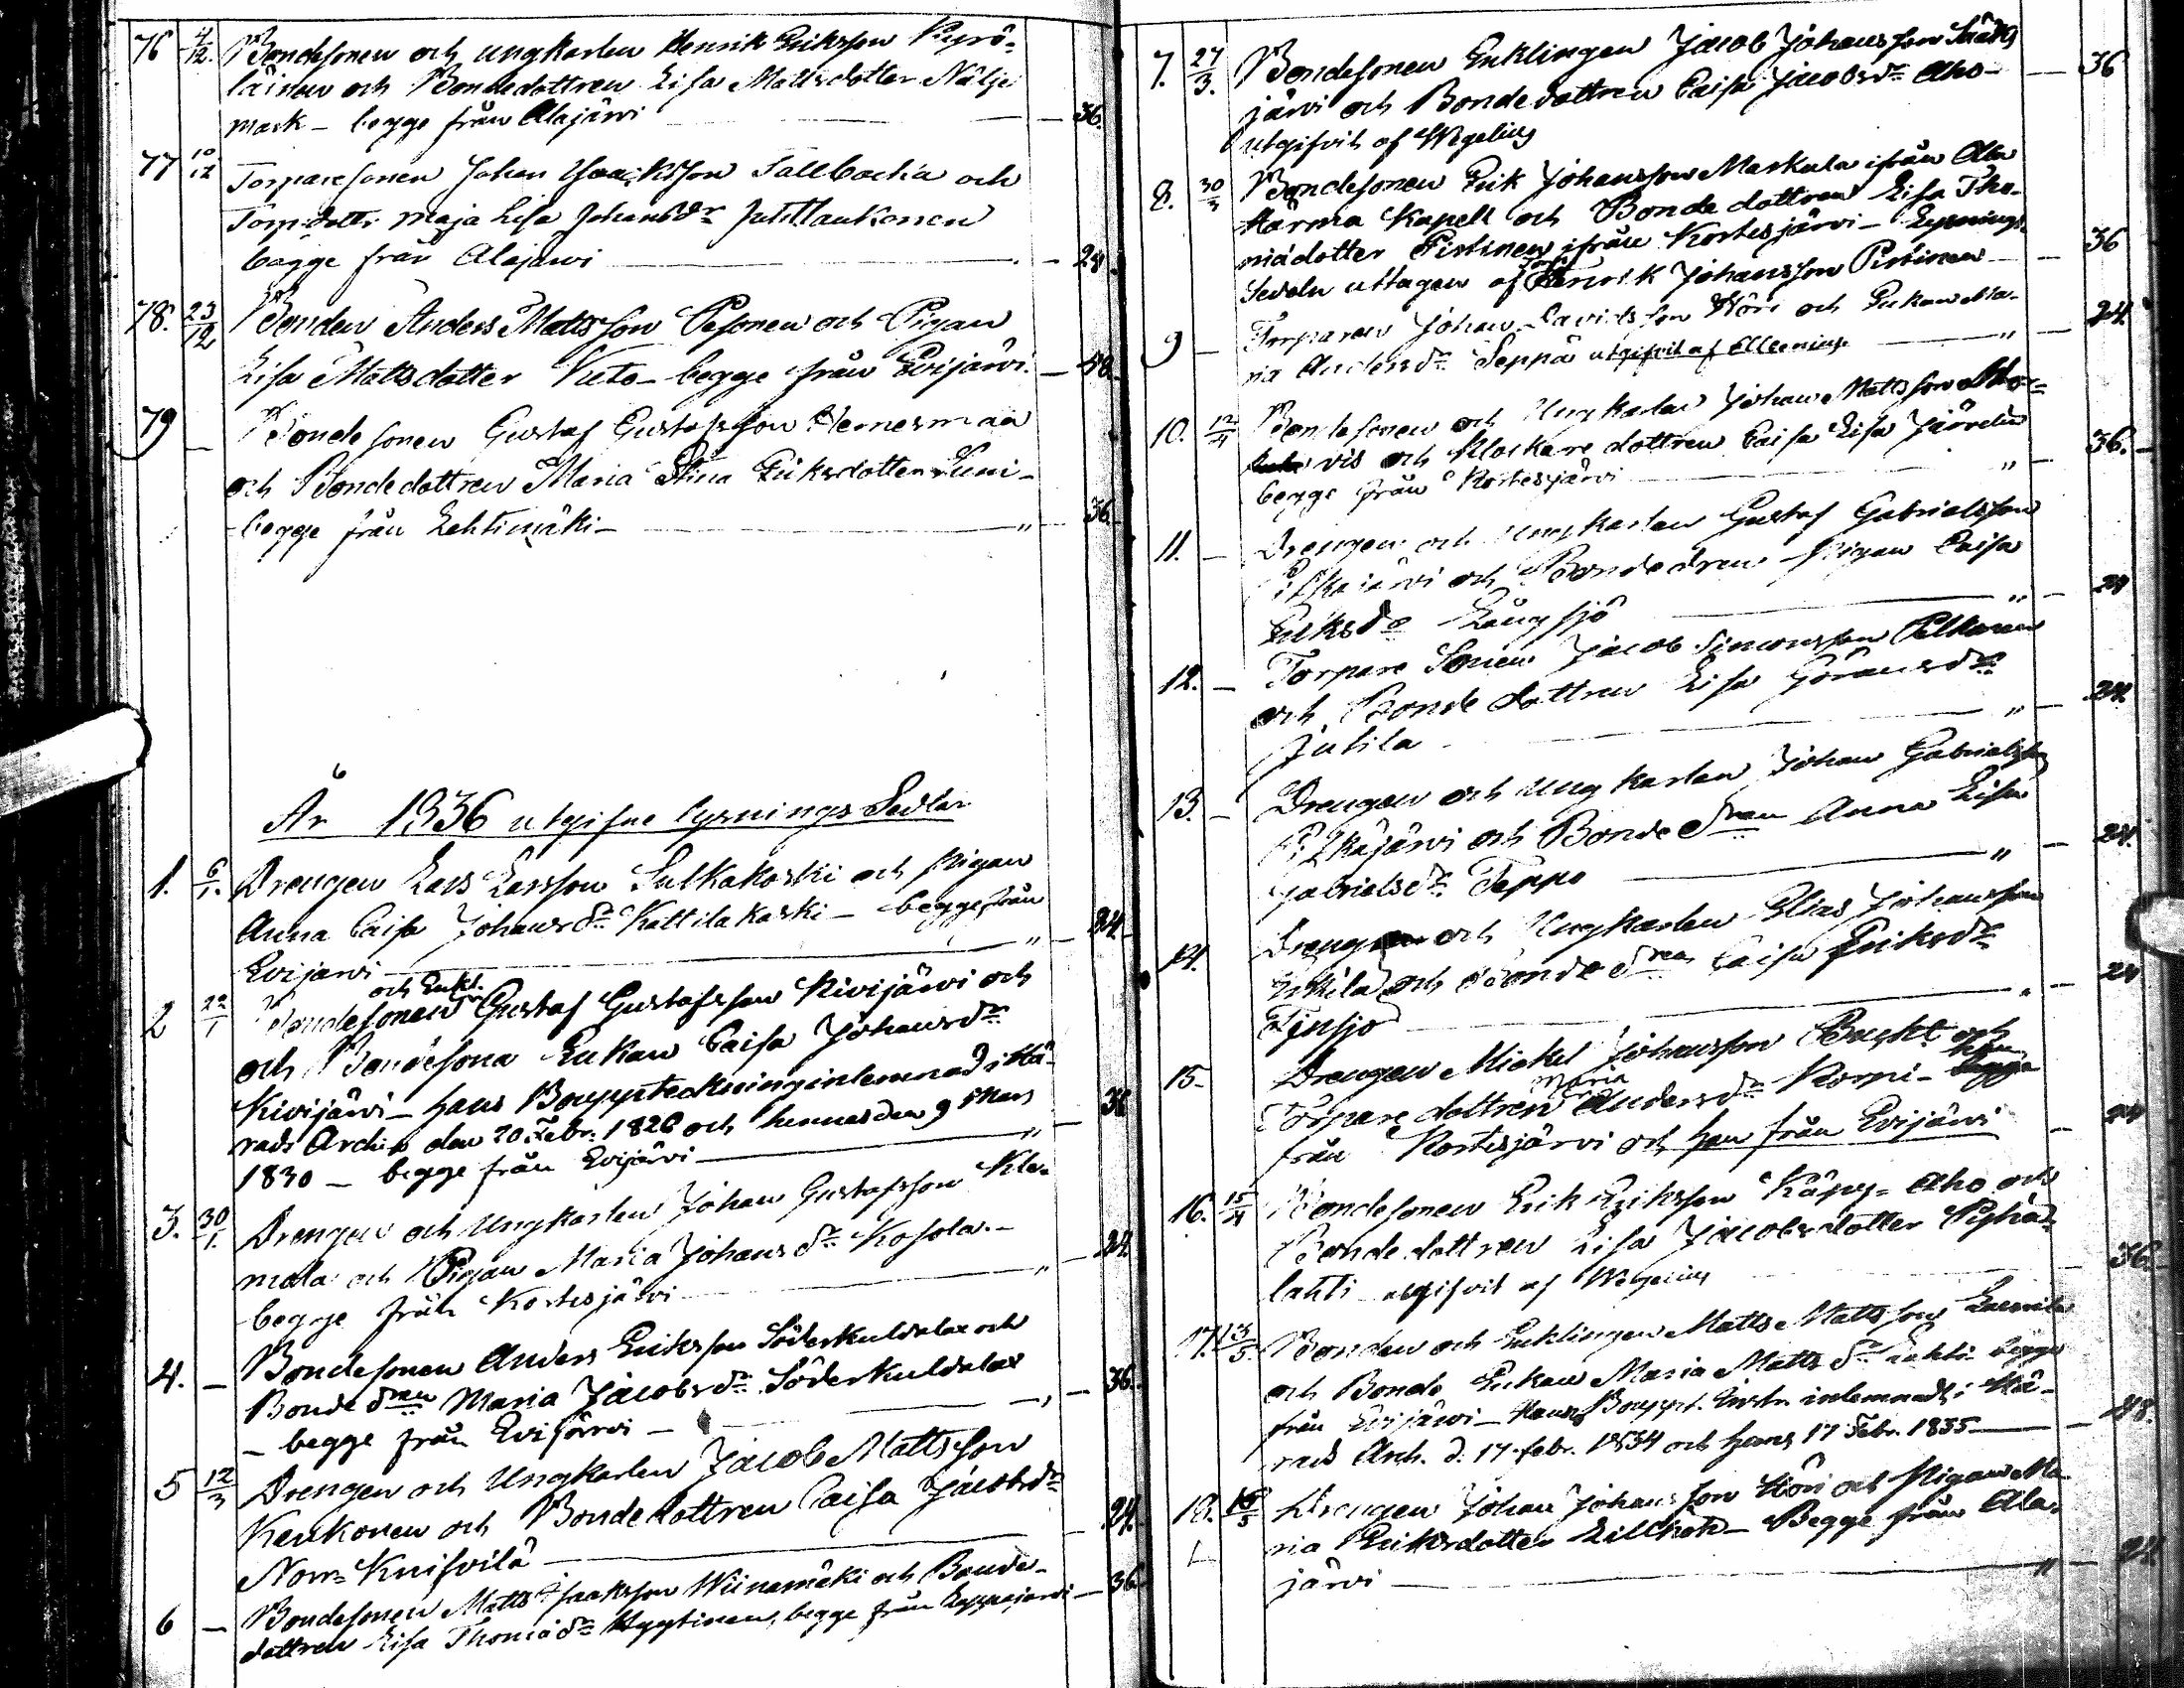 76 4/12. Bondesonen och ungkarlen Henrik Eriksson Kyrö-
läinen och Bondedottren Lisa Mattsdotter Nälje
mark - begge från Alajärvi — 36.
77 10/12 Torparesonen Johan Isaaksson Sallbacka och
Torp.dottr Maja Lisa Johansdr
bägge från Alajärvi — 24.
78. 23/12 Bonden Anders Mattsson Pesonen och Pigan
Lisa Mattsdotter Vieto - begge från Evijärvi. — 48.
79 — Bondesonen Gustaf Gustafsson Hernesmaa
och Bondedottren Maria Stina Eriksdotter
begge från Lehtimäki — " — 36.
År 1836 utgifne lysnings Sedlar
1. 6/1. Drengen Lars Larsson Sulkakoski och Pigan
Anna Caisa Johansdr Kattilakoski - begge från
Evijärvi — " — 24.
och Enkl.
2 22/1 Bondesonen Gustaf Gustafsson Kivijärvi och
och Bondesona Enkan Caisa Johansdr
Kivijärvi - hans Bouppteckning inlemnad i Hä-
rads Archiv den 20 Febr. 1826 och hennes den 9 Mars
1830 - begge från Evijärvi — " — 36
3. 30/1. Drengen och Ungkarlen Johan Gustafsson Kle-
mola och Pigan Maria Johansdr Kosola. -
begge från Kortesjärvi — " — 24.
4. — Bondesonen Anders Eriksson Söderkuldalax och
Bonde dren Maria Jacobsdr Söderkuldalax
- begge från Evijärvi — 36.
5 12/3 Drengen och Ungkarlen Jacob Mattsson
Kenkonen och Bondedottren Caisa Jacobsdr
Norr= Knifsilä — 24.
6 — Bondesonen Matts Isaaksson Wiinamäki och Bonde-
dottren Lisa Thomädr Hyytinen, begge från Lappajärvi — 36.
7. 27/3. Bondesonen Enklingen Jacob Johansson Sääks
järvi och Bondedottren Caisa Jacobsdr Aho - — 36
utgifvit af Wegelius
8. 30/3 Bondesonen Erik Johansson Markula ifrån Ala
Härmä Kapell och Bondedottren Lisa Tho-
mädotter Pistinen ifrån Kortesjärvi - Lysnings
Sedeln uttagen af Henrik Johansson Pistinen — 36
9 — Torparen Johan Davidsson Höri och Enkan Ma-
ria Andersdr Seppä — " — 24.
10. 12/4 Bondesonen och Ungkarlen Johan Mattsson
vis och Klockare dottren Caisa Lisa Järvelin
begge från Kortesjärvi — " — 36.
11. — Drengen och Ungkarlen Gustaf Gabrielsson
Pitkäjärvi och Bondedren Pigan Caisa
Eriksdr Långsjö — " — 24
12. — Torpare Sonen Jacob Simonsson Pelkonen
och Bonde dottren Lisa Göransdr
Jutila — " — 24.
13. — Drengen och Ungkarlen Johan Gabrielsson
Pitkäjärvi och Bonde dren Anna Lisa
Gabrielsdr Teppo — " — 24.
14. Drengen och Ungkarlen Elias Johansson
och Bonde dren Caisa Eriksdr
— " — 24
15- Drengen Mickel Johansson och
Maria
Torpare dottren Andersdr Korpi - hon
från Kortesjärvi och han från Evijärvi — 24
16. 15/4 Bondesonen Erik Eriksson Käpy= Aho och
Bonde dottren Lisa Jacobsdotter Pyhä-
lahti utgifvit af Wegelius — 36.
17. 13/5. Bonden och Enklingen Matts Mattsson
och Bonde Enkan Maria Mattsdr Lahti begge
från Evijärvi - Hennes Bouppt. Instr. inlemnadt i Hä-
rads Arch. d. 17 febr. 1834 och hans 17 Febr. 1835 — 48.
18. 15/5 Drengen Johan Johansson Höri och Pigan Ma-
ria Eriksdotter - Begge från Ala-
järvi — " — 24